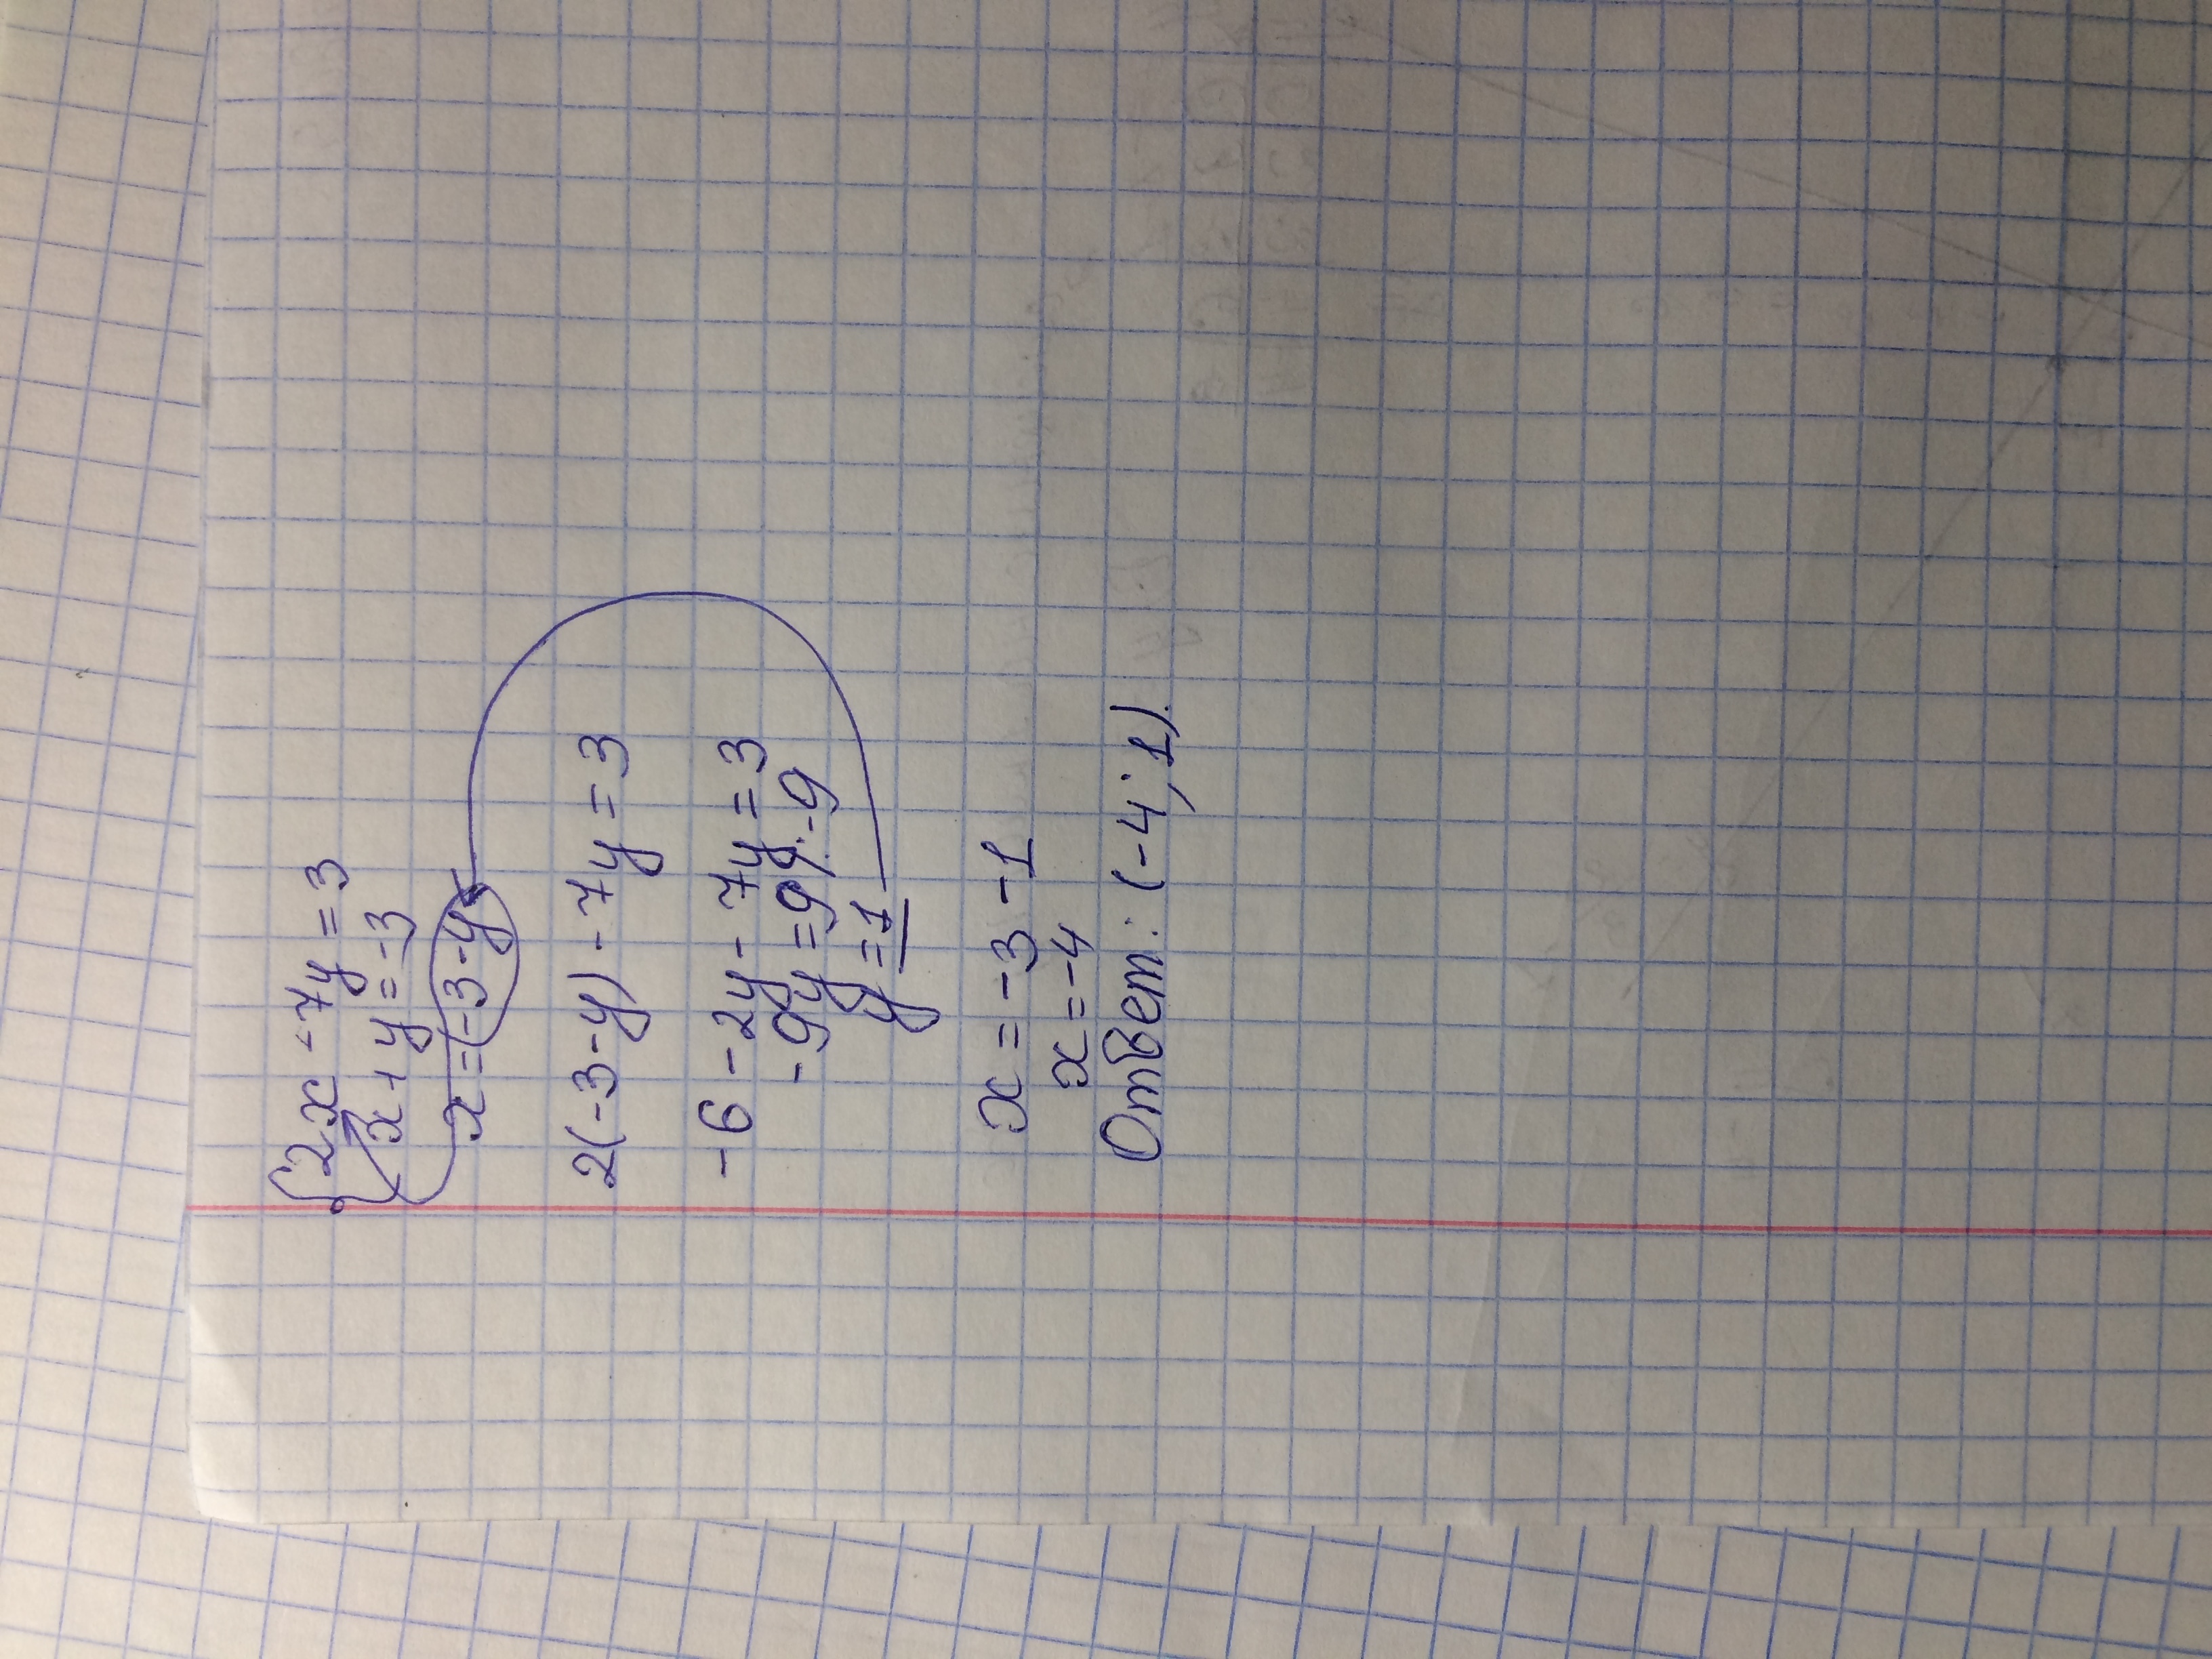 2x - 7y = 3
x + y = -3
x = (-3 - y)
2(-3-y) - 7y = 3
-6 - 2y - 7y = 3
-9y = 9 / : -9
y = 1
x = -3 - 1
x = -4
Ответ: (-4; 1).